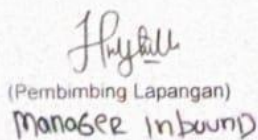 (Pembimbing Lapangan)
Manager Inbound